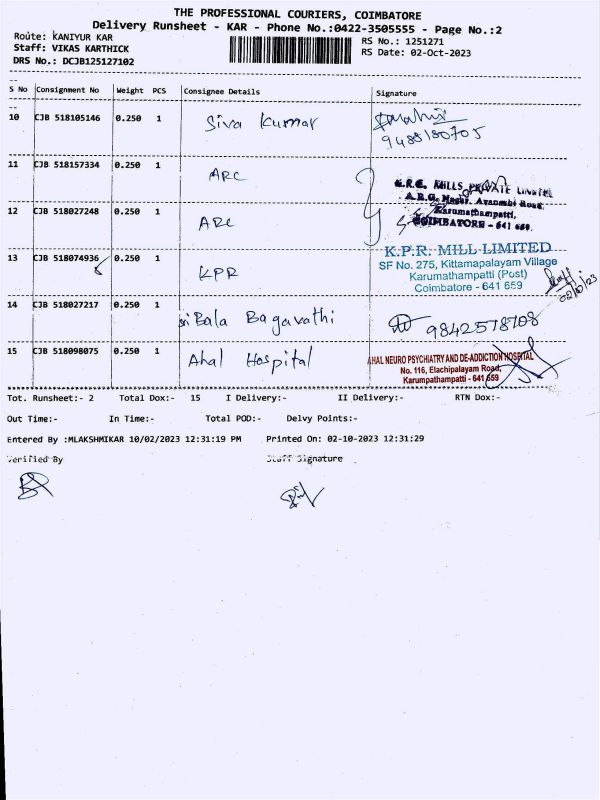 THE PROFESSIONAL COURIERS, COIMBATORE
Delivery Runsheet - KAR - Phone No.:0422-3505555 - Page No.:2
Route: KANIYUR KAR
RS No.: 1251271
Staff: VIKAS KARTHICK
RS Date: 02-Oct-2023
DRS No.: DCJB125127102
S No Consignment No Weight PCS Consignee Details Signature
10 CJB 518105146 0.250 1 Siva Kumar
9488180705
11 CJB 518157334 0.250 1 ARC
MILLS PRIVATE LIMITED
12 CJB 518027248 0.250 1 ARC
Karumathampatti,
COIMBATORE - 641 659.
13 CJB 518074936 0.250 1 KPR
K.P.R. MILL LIMITED
SF No. 275, Kittamapalayam Village
Karumathampatti (Post)
Coimbatore - 641 659
02/10/23
14 CJB 518027217 0.250 1 Sri Bala Bagavathi
9842578708
15 CJB 518098075 0.250 1 Ahal Hospital
AHAL NEURO PSYCHIATRY AND DE-ADDICTION HOSPITAL
No. 116, Elachipalayam Road,
Karumpathampatti - 641 659
Tot. Runsheet:- 2 Total Dox:- 15 I Delivery:- II Delivery:- RTN Dox:-
Out Time:- In Time:- Total POD:- Delvy Points:-
Entered By :MLAKSHMIKAR 10/02/2023 12:31:19 PM Printed On: 02-10-2023 12:31:29
Verified By Staff Signature